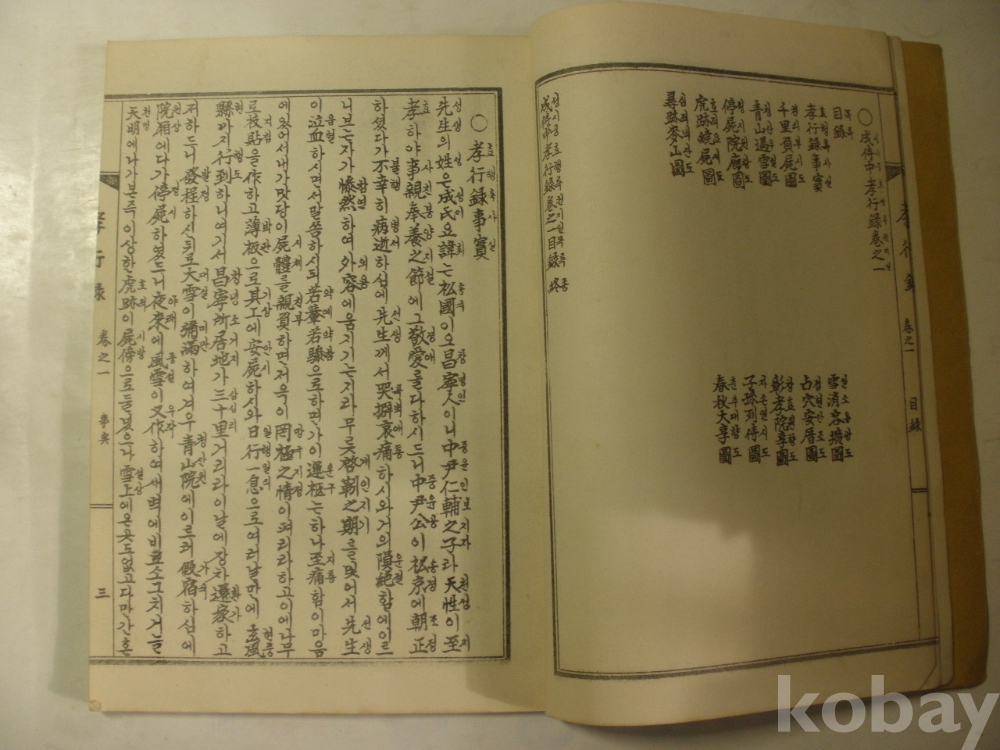 孝行錄 卷之一 目錄
○成停中孝行錄卷之一
目錄
孝行錄事實
千里負屍圖
靑山遇雪圖
停屍院廡圖
虎跡繞屍圖
尋跡麥山圖
雪消容壙圖
占穴安厝圖
彰孝院享圖
子孫列停圖
春秋大享圖
成停中孝行錄卷之一目錄 終
○孝行錄事實
先生의姓은成氏요諱는松國이오昌寧人이니中尹仁輔之子라天性이至
孝하야事親奉養之節에그敬愛를다하시드니中尹公이松京에朝正
하셨다가不幸히病逝하심에先生께서哭擗哀痛하시와거의隕絶함에이르
니보는자가慘然하여外容에움지기는지라무릇啓靷之期를맞어서先生
이泣血하시면서말씀하시되若輦若驂으로하면가이運柩는하나至痛함이마음
에있어서내가맛당이屍體를親負하며저욱이罔極之情이펴리라하고이에나무
로枝貼을作하고薄板으로其工에安屍하시와日行一息으로여러날만에玄風
縣까지行到하니여기서昌寧所居地가三十里거리라이날에장차運家하고
저하드니發程하신뒤로大雪이彌滿하여겨우靑山院에이르러假宿하심에
院廂에다가停屍하였드니夜來에風雪이又作하여새벽에비로소그치거늘
天明에나가본즉이상한虎跡이屍傍으로둘렀으나雪上에온곳도없고다만간흔
孝行錄 卷之一 事實 三
kobay